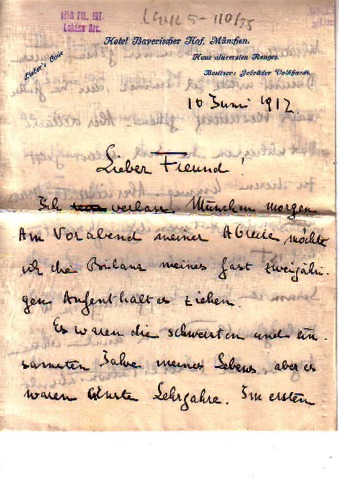 MTA FIL. INT.
Lukács Arc.
Hotel Bayerischer Hof, München.
Lieber's Code
Haus allerersten Ranges.
Besitzer: Gebrüder Volkhardt.
10 Juni 1912
Lieber Freund!
Ich verlass München morgen
Am Vorabend meiner Abreise möchte
ich die Bilanz meines fast zweijähri-
gen Aufenthaltes ziehen.
Es waren die schwersten und ein-
samsten Jahre meines Lebens aber es
waren Lehrjahre. Im ersten